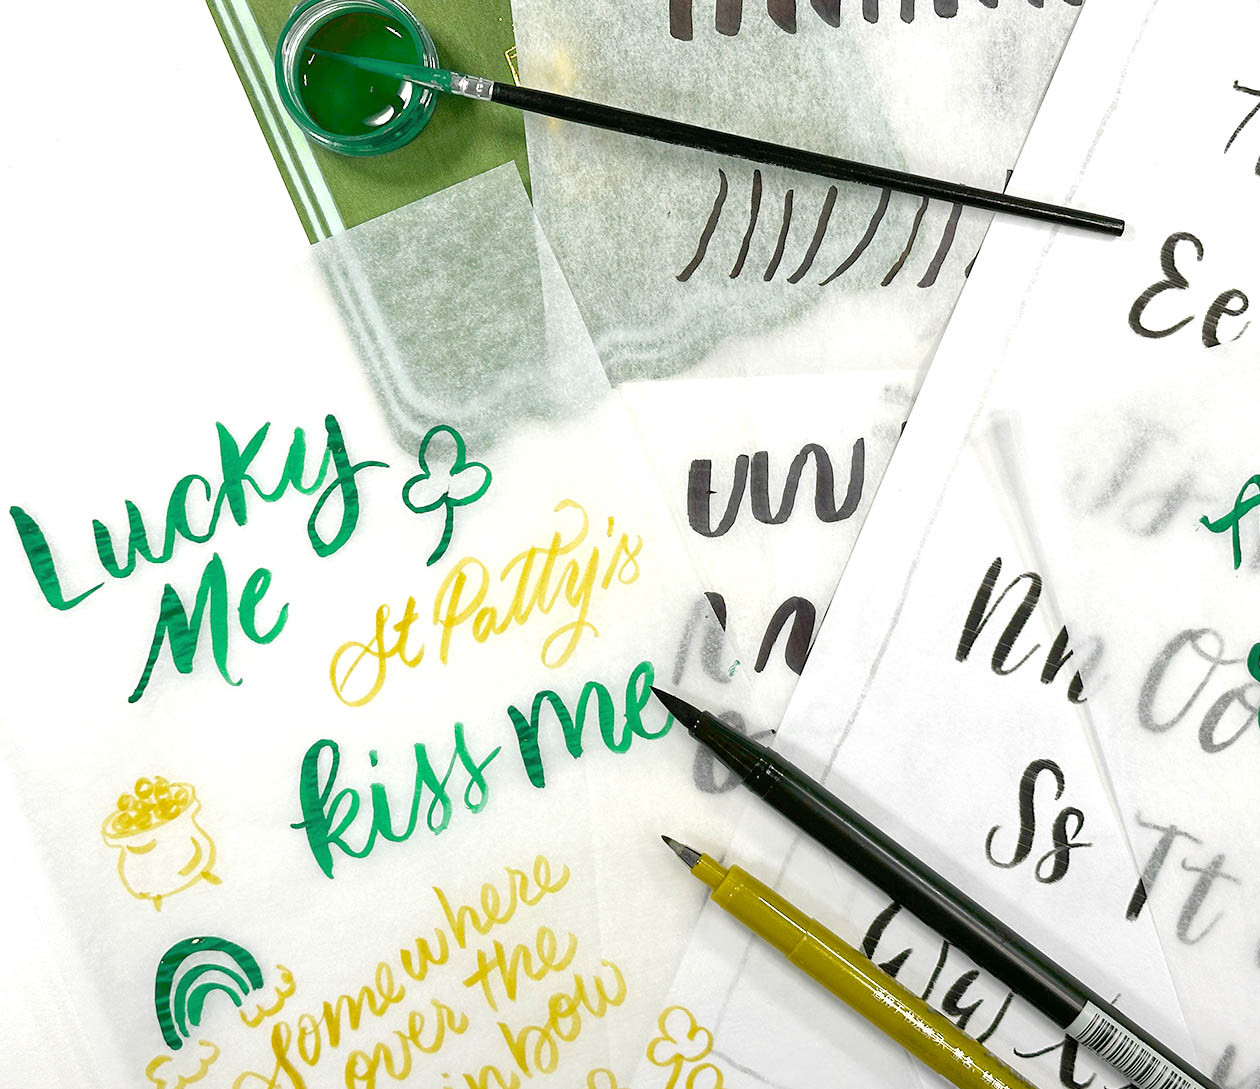 Lucky
Me
St Patty's
kiss me
Somewhere
over the
Ee
Nn
Oo
Ss
Tt
Ww